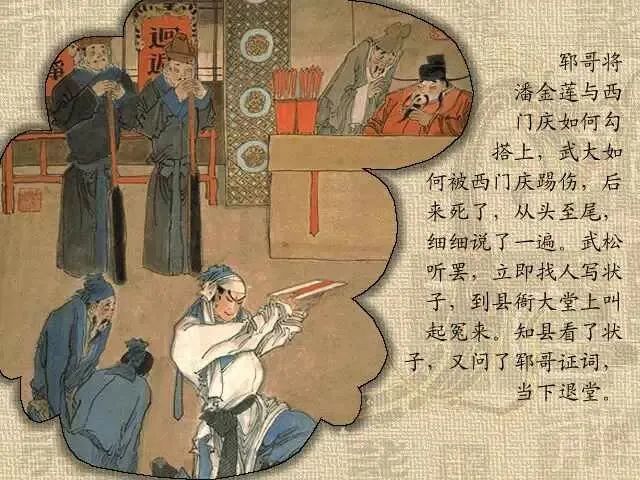 迴避
郓哥将
潘金莲与西
门庆如何勾
搭上，武大如
何被西门庆踢伤，后
来死了，从头至尾，
细细说了一遍。武松
听罢，立即找人写状
子，到县衙大堂上叫
起冤来。知县看了状
子，又问了郓哥证词，
当下退堂。